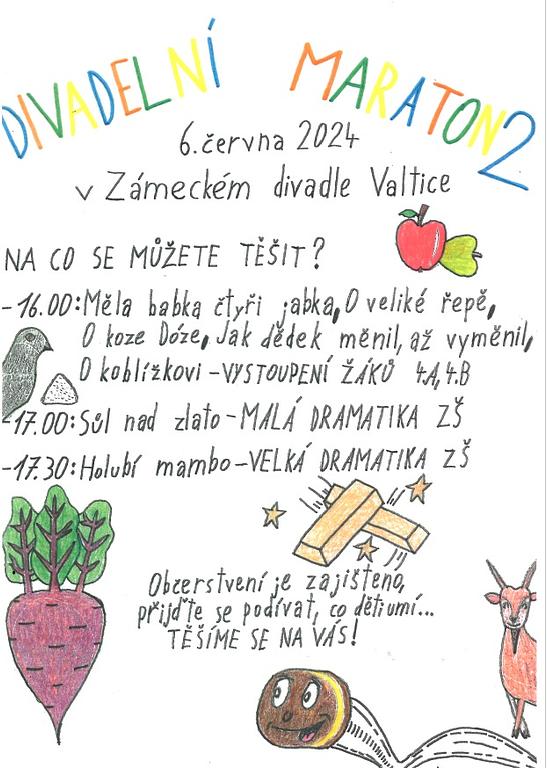 DIVADELNÍ MARATON 2
6. června 2024
v Zámeckém divadle Valtice
NA CO SE MŮŽETE TĚŠIT?
-16.00: Měla babka čtyři jabka, O veliké řepě,
O koze Dóze, Jak dědek měnil, až vyměnil,
O koblížkovi - VYSTOUPENÍ ŽÁKŮ 4.A, 4.B
-17.00: Sůl nad zlato - MALÁ DRAMATIKA ZŠ
-17.30: Holubí mambo - VELKÁ DRAMATIKA ZŠ
Občerstvení je zajištěno,
přijďte se podívat, co děti umí...
TĚŠÍME SE NA VÁS!